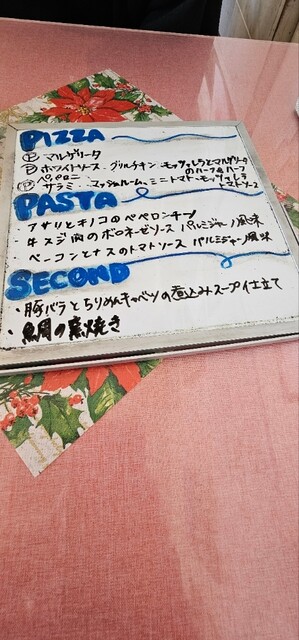 PIZZA
マルゲリータ
ホワイトソース・グリルチキン・モッツァレラとマルゲリータ
のハーフ&ハーフ
ペパロニ
サラミ・マッシュルーム・ミニトマト・モッツァレラ
トマトソース
PASTA
・アサリとキノコのペペロンチーノ
・牛スジ肉のボロネーゼソース パルミジャーノ風味
・ベーコンとナスのトマトソース パルミジャーノ風味
SECOND
・豚バラとちりめんキャベツの煮込みスープ仕立て
・鯛の窯焼き